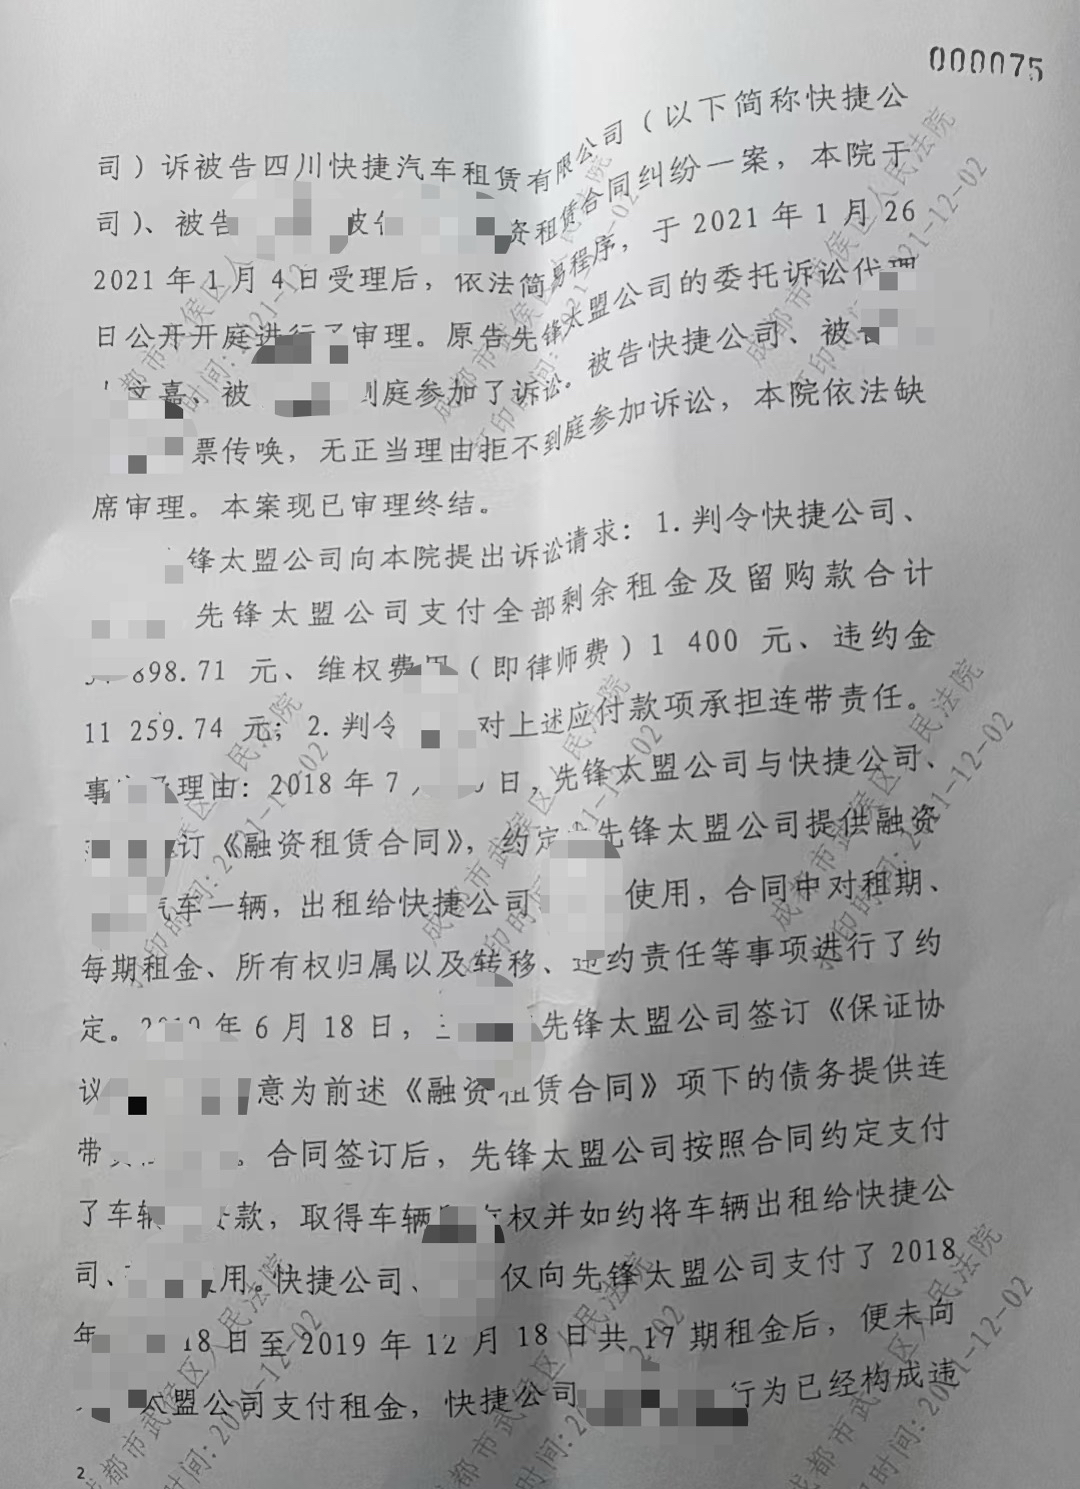 000075
司）诉被告四川快捷汽车租赁有限公司（以下简称快捷公
司）、被告 被 资租赁合同纠纷一案，本院于
2021年1月4日受理后，依法简易程序，于2021年1月26
日公开开庭进行了审理。原告先锋太盟公司的委托诉讼代理
文嘉，被 到庭参加了诉讼。被告快捷公司、被告
票传唤，无正当理由拒不到庭参加诉讼，本院依法缺
席审理。本案现已审理终结。
锋太盟公司向本院提出诉讼请求：1.判令快捷公司、
先锋太盟公司支付全部剩余租金及留购款合计
898.71 元、维权费用（即律师费）1 400 元、违约金
11 259.74 元；2.判令 对上述应付款项承担连带责任。
事 理由：2018年7 日，先锋太盟公司与快捷公司、
订《融资租赁合同》，约定 先锋太盟公司提供融资
汽车一辆，出租给快捷公司 使用，合同中对租期、
每期租金、所有权归属以及转移、违约责任等事项进行了约
定。 年6月18日， 先锋太盟公司签订《保证协
议 意为前述《融资租赁合同》项下的债务提供连
带 。合同签订后，先锋太盟公司按照合同约定支付
了车辆 款，取得车辆 有权并如约将车辆出租给快捷公
司、 用。快捷公司、 仅向先锋太盟公司支付了2018
年 18日至2019年12月18日共17期租金后，便未向
盟公司支付租金，快捷公司 行为已经构成违
2
成都市武侯区人民法院
打印时间：2021-12-02
成都市武侯区人民法院
打印时间：2021-12-02
成都市武侯区人民法院
打印时间：2021-12-02